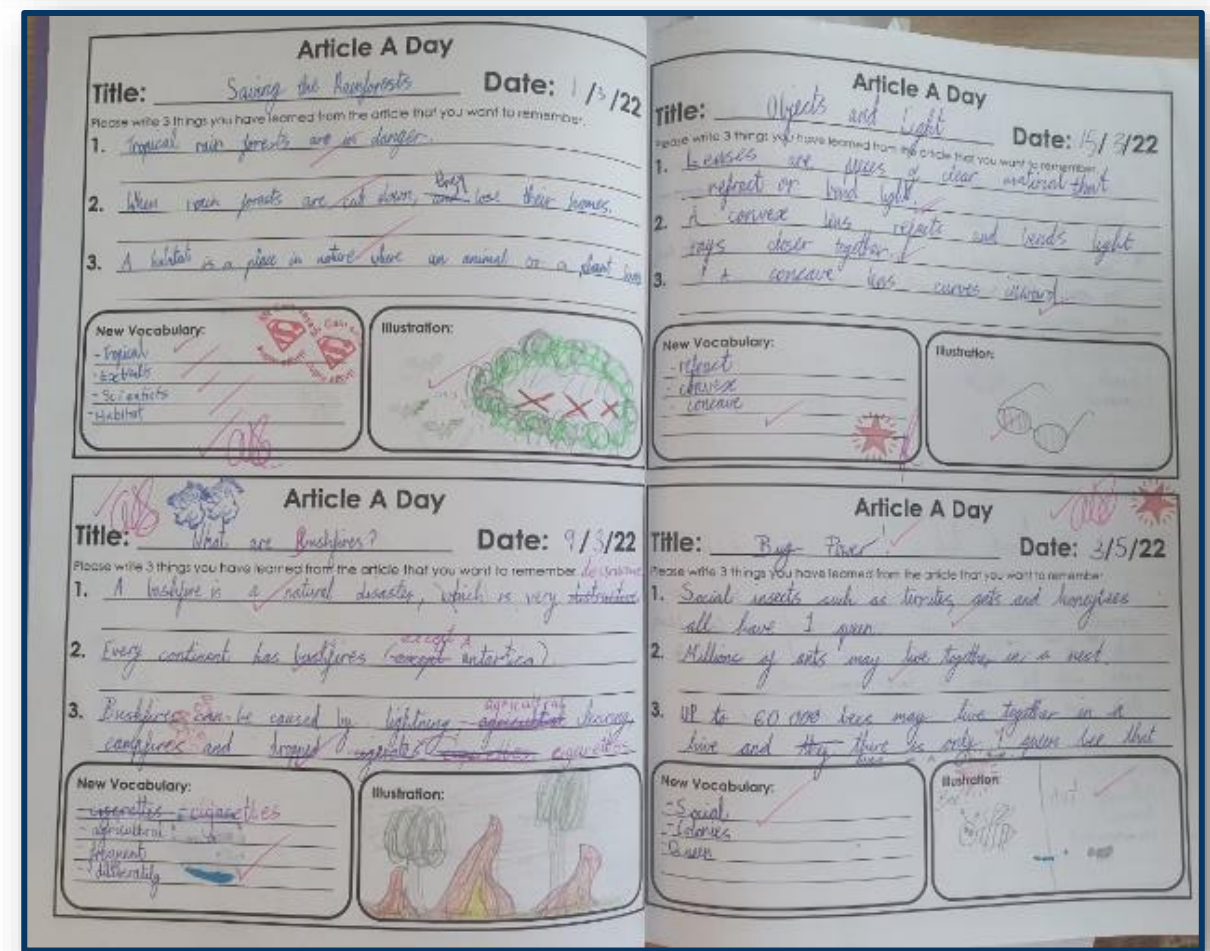 Article A Day
Title: Saving the Rainforests Date: 1/3/22
Please write 3 things you have learned from the article that you want to remember.
1. Tropical rain forests are in danger.
2. When rain forests are cut down, lose their homes.
3. A habitat is a place in nature where an animal or a plant
New Vocabulary:
- Tropical
- Scientists
- Habitat
Illustration:
Article A Day
Title: What are Bushfires? Date: 9/3/22
Please write 3 things you have learned from the article that you want to remember.
1. A bushfire is a natural disaster, which is very
2. Every continent has bushfires (except antartica)
3. Bushfires can be caused by lightning agricultral clearing,
campfires and dropped cigarettes
New Vocabulary:
- cigarettes
- agricultral
Illustration:
Article A Day
Title: Objects and Light Date: 15/3/22
Please write 3 things you have learned from the article that you want to remember.
1. Lenses are pieces of clear material that
refract or bend light.
2. A convex lens and bends light
rays closer together.
3. A concave lens curves inward.
New Vocabulary:
- refract
- convex
concave
Illustration:
Article A Day
Title: Bug Power! Date: 3/5/22
Please write 3 things you have learned from the article that you want to remember
1. Social insects such as termites, ants and
all have 1 queen.
2. Millions of ants may live together in a nest.
3. UP to 60 000 bees may live together in a
hive and there is only 1 queen bee that
New Vocabulary:
- Social
- Colonies
- Queen
Illustration: